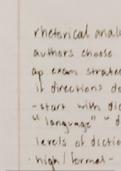 rhetorical anal
authors choose
ap exam strate
if directions do
- start with dic
"language" "d
levels of dictio
· high/formal -